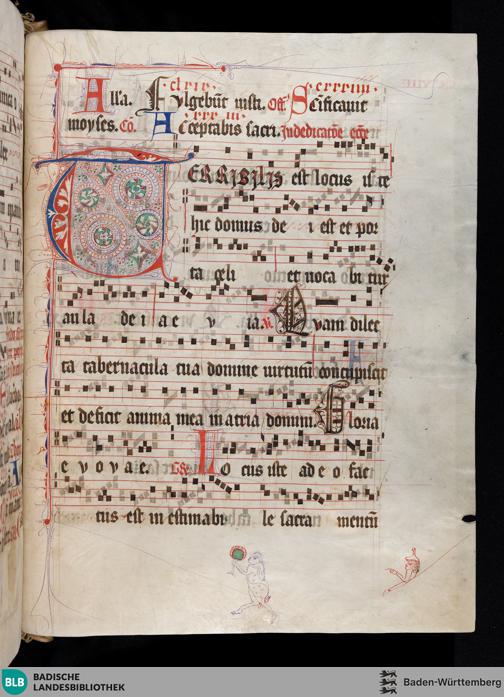 Alla. Fulgebūt iusti. Off. Scificauit
moyses. Co. Acceptabis sacri. In dedicatōe eccē
TERRIBILIS est locus iste
hic domus de i est et por
ta celi et uoca bi tur
au la de i a e v ia. V. Quam dilec
ta tabernacula tua domine uirtutū concupiscit
et deficit anima mea in atria domini Gloria
e v o v a e. Gr. Lo cus iste a de o fac
tus est in estimabi le sacra mentū
BLB BADISCHE
LANDESBIBLIOTHEK
Baden-Württemberg